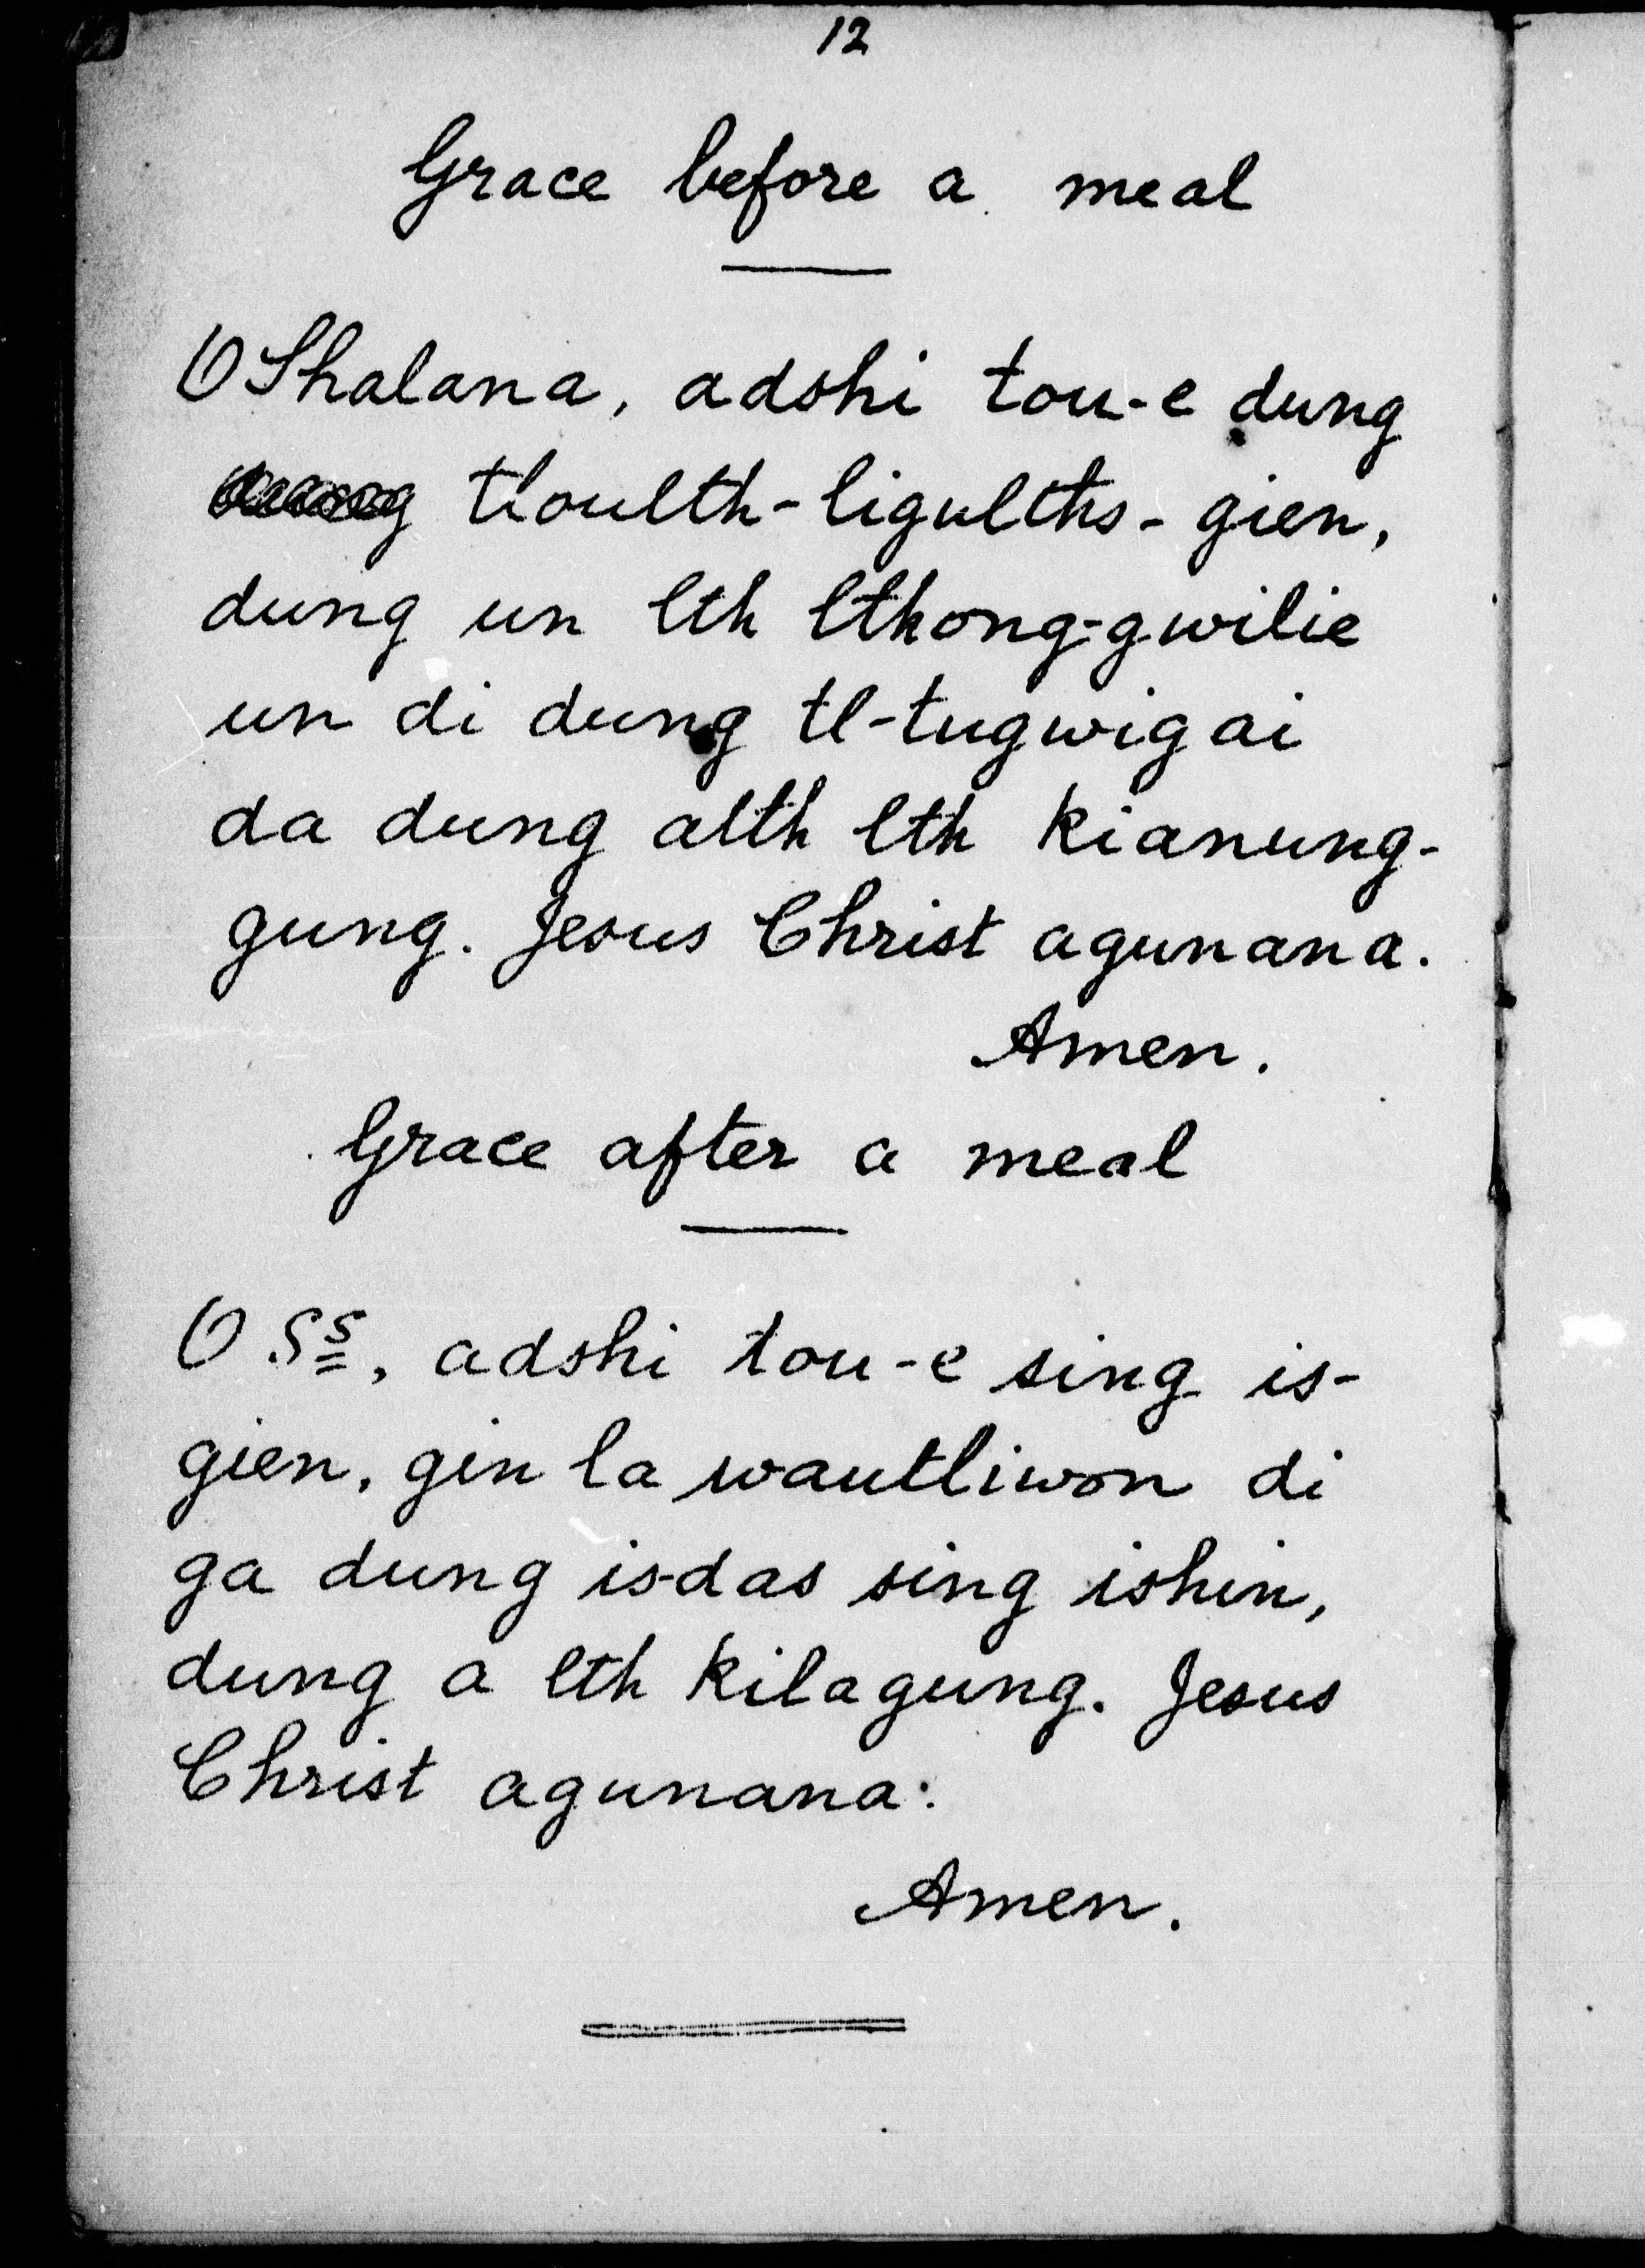 12
Grace before a meal
O Shalana, adshi tou-e dung
tloulth-ligulths-gien,
dung un lth lthong-gwilie
un di dung tl-tugwigai
da dung alth lth kianung-
gung. Jesus Christ agunana.
Amen.
Grace after a meal
O Ss, adshi tou-e sing is-
gien, gin la wautliwon di
ga dung isdas sing ishin,
dung a lth kilagung. Jesus
Christ agunana.
Amen.